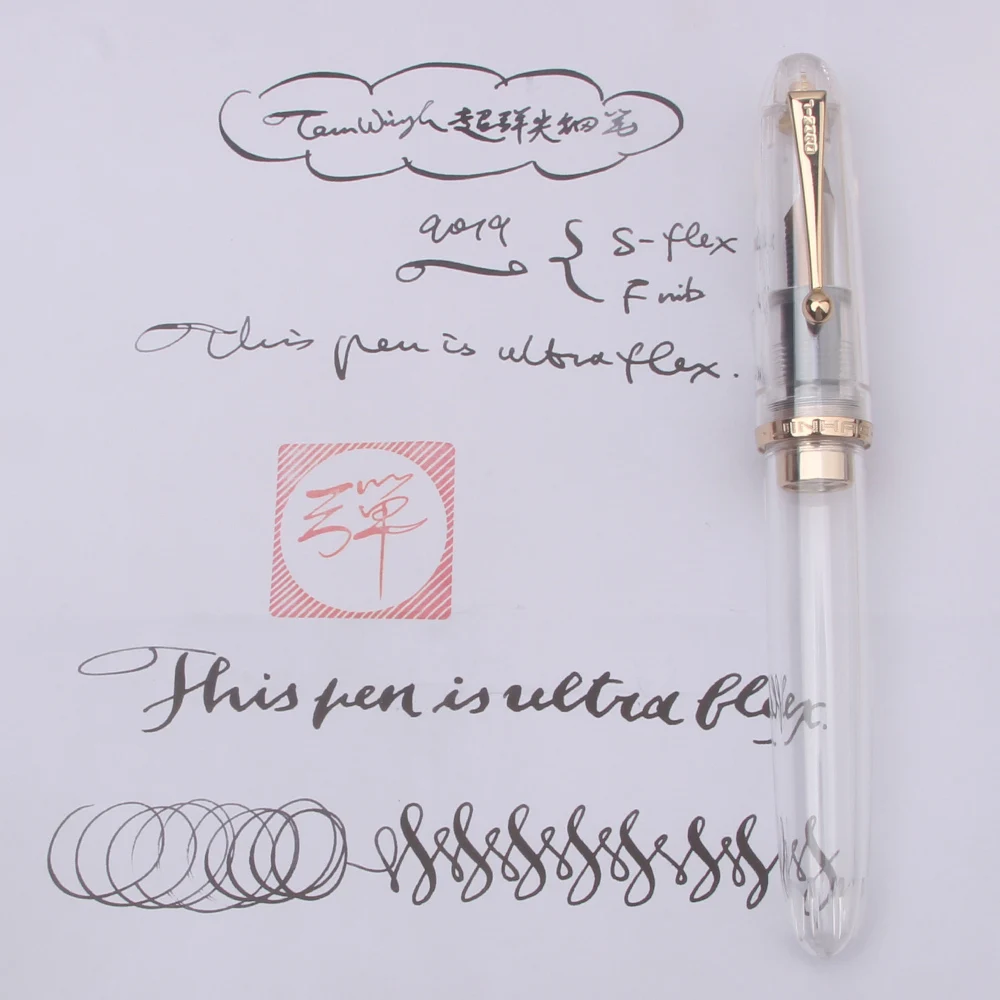 超群尖细笔
9019
S-flex
F nib
This pen is ultra flex.
彈
This pen is ultra flex.